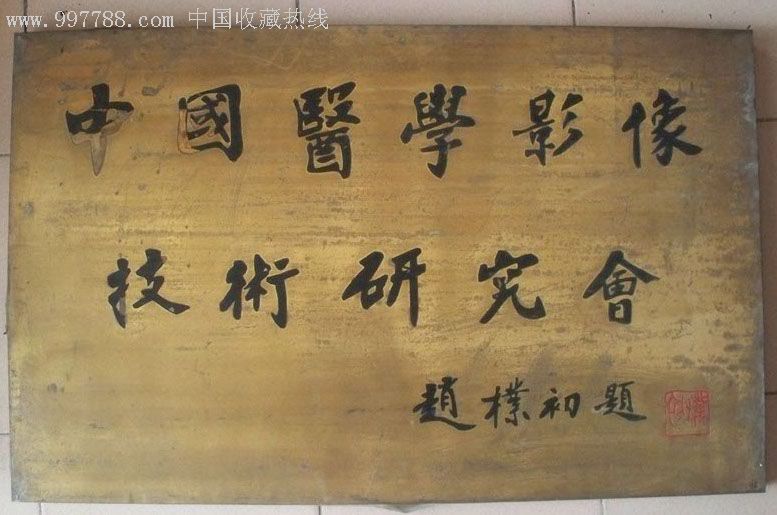 www.997788.com 中国收藏热线
中國醫學影像
技術研究會
趙樸初題